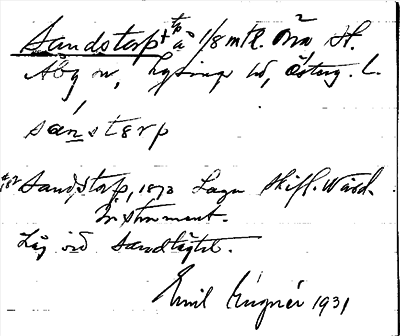 Sandstorp + tp å 1/8 mtl. från St.
Åby sn, Lysings hd, Österg. l.
sánstərp
Sandstorp, 1873 Laga skift. Värd.
Instrument.
Låg vid sandtägt.
Emil Lingnér 1931